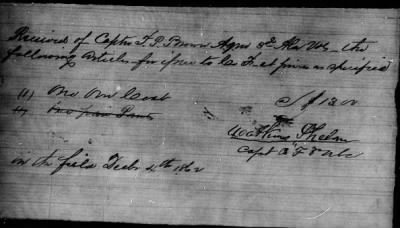 Received of Captn F. P. Brown Agm 3d Ala Vols the
following articles for issue to Co F at prices as specified
(1) One Over Coat $ 12.00
(1) One pair Pants
Watkins Phelan
Capt Co F 3d Ala
In the field Decbr 4th 1862